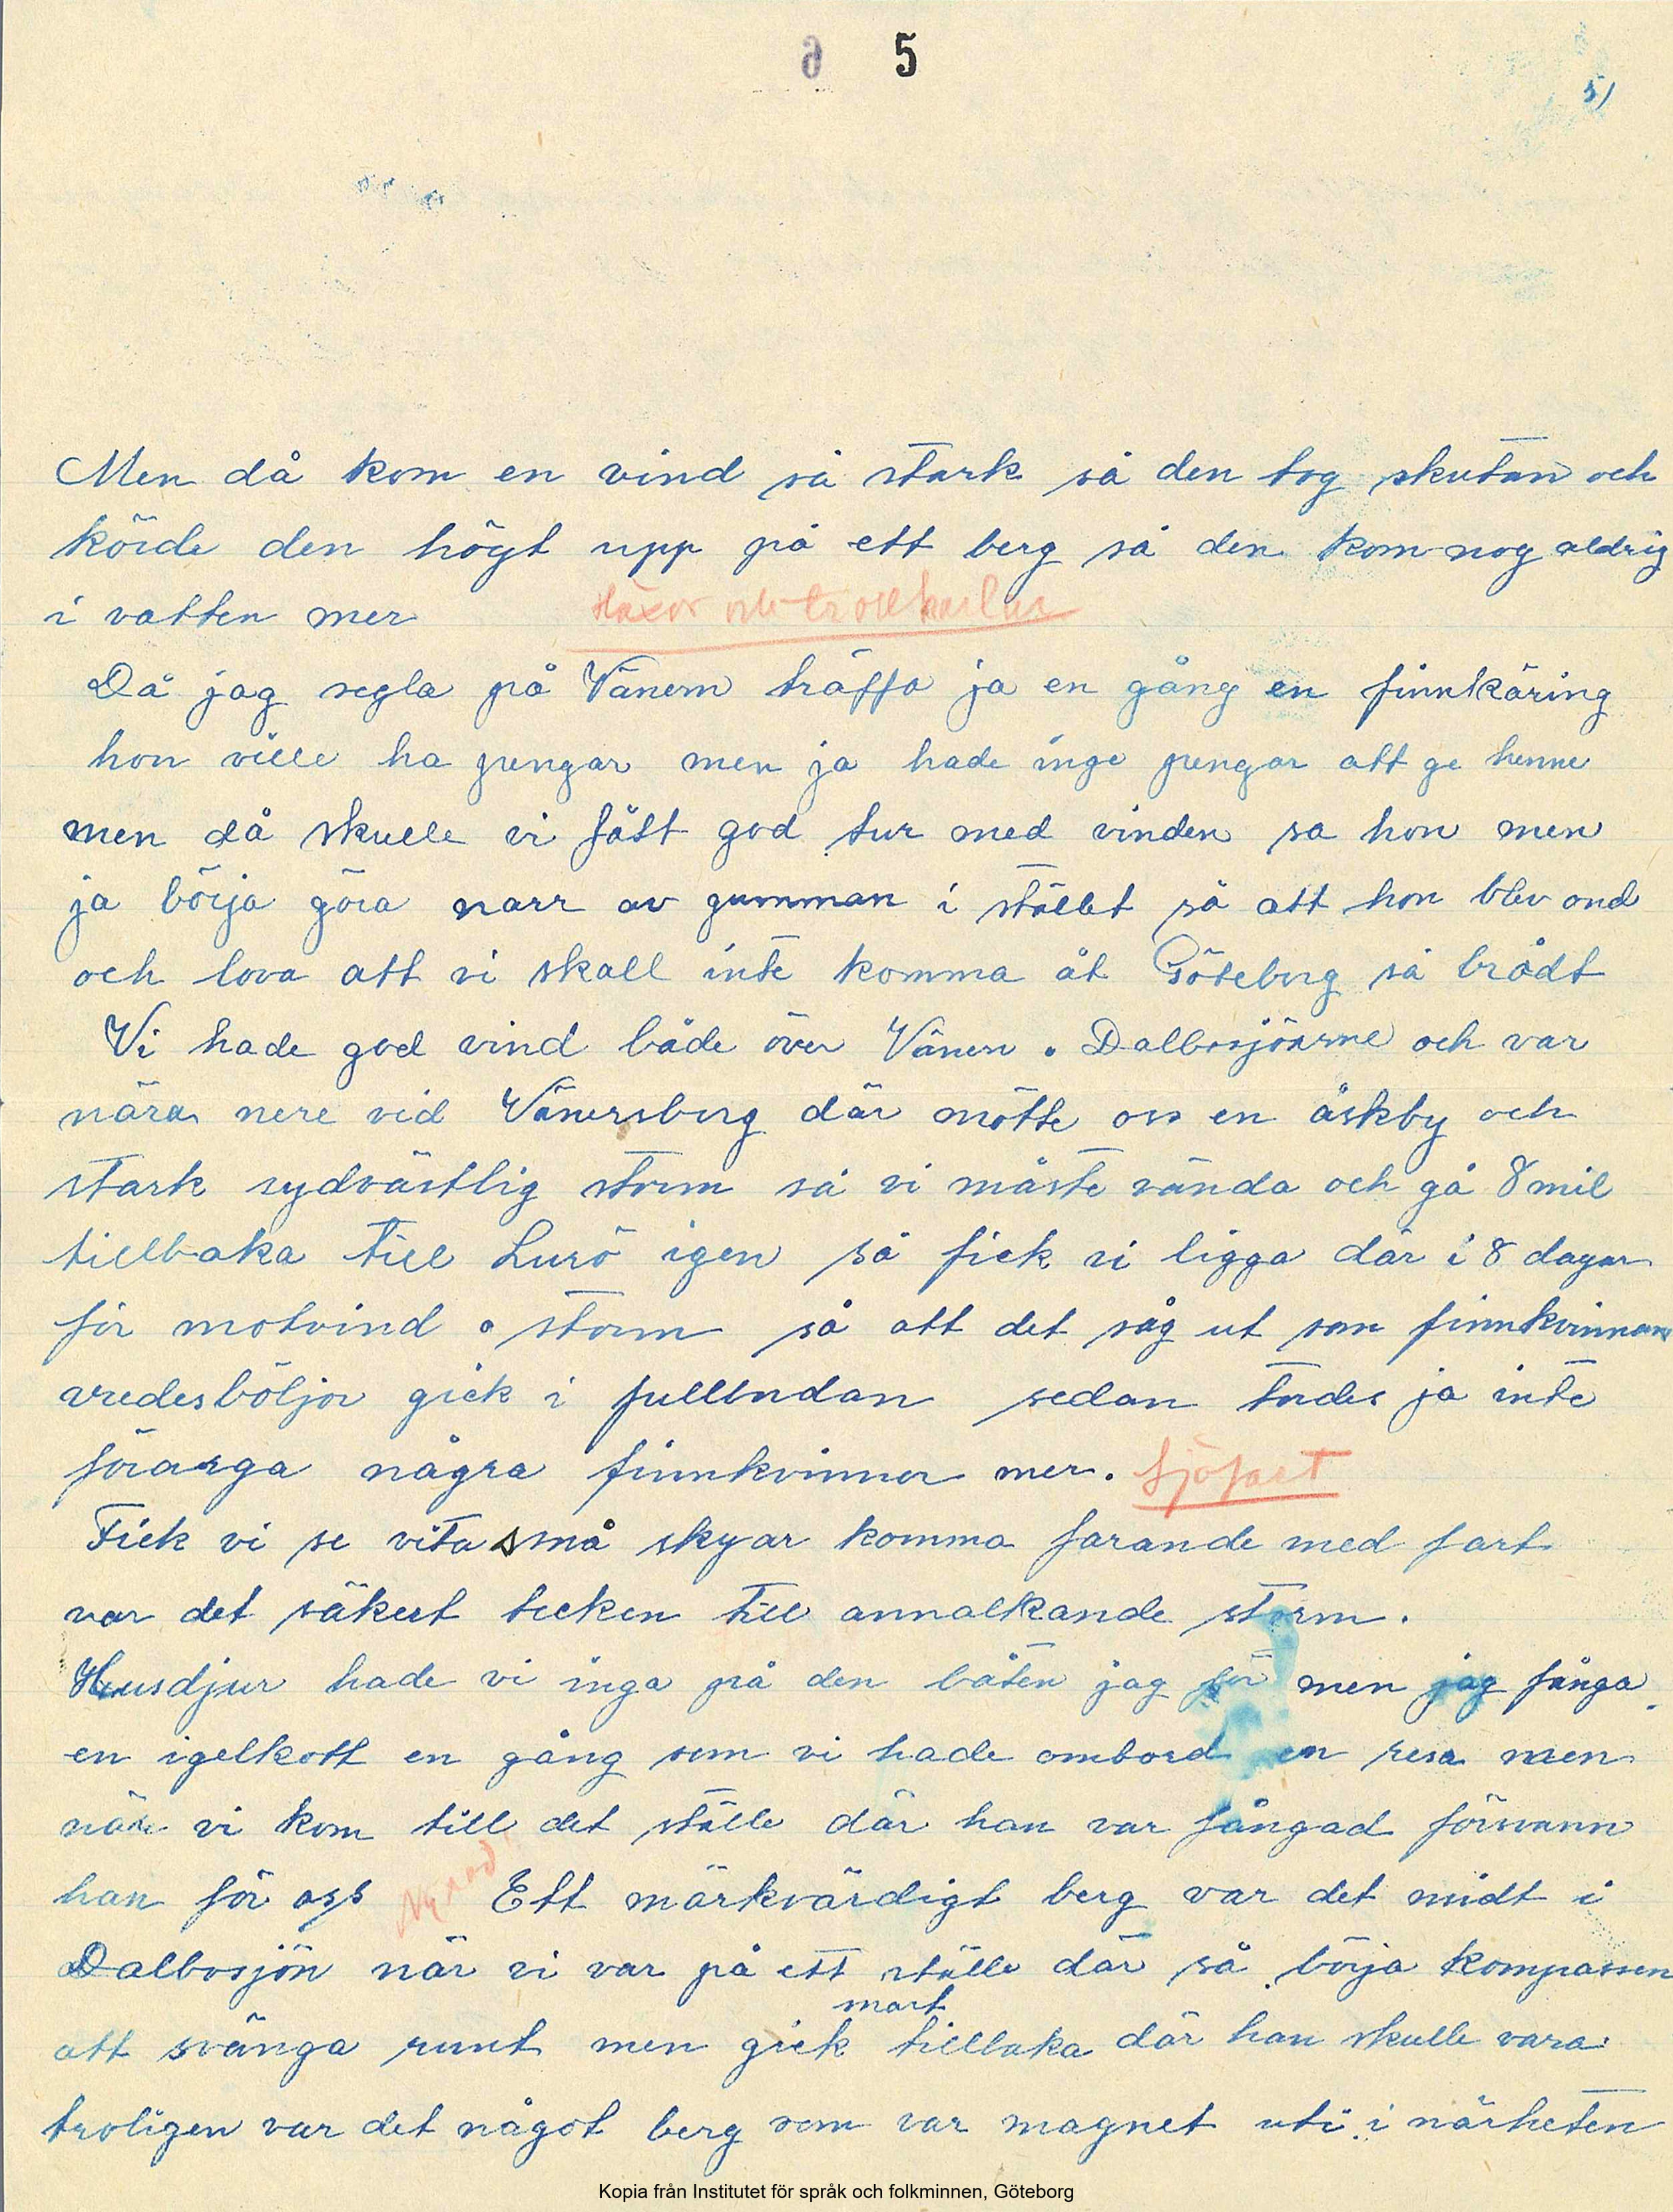 5
5)
Men då kom en vind så stark så den tog skutan och
körde den högt upp på ett berg så den kom nog aldrig
i vatten mer
Häxor och trollkarlar
Då jag segla på Vänern träffa ja en gång en finnkäring
hon ville ha pengar men ja hade inge pengar att ge henne
men då skulle vi fått god tur med vinden sa hon men
ja börja göra narr av gumman i stället så att hon blev ond
och lova att vi skall inte komma åt Göteborg så brådt
Vi hade god vind både över Vänern o Dalbosjöarne och var
nära nere vid Vänersborg där mötte oss en åskby och
stark sydvästlig storm så vi måste vända och gå 8 mil
tillbaka till Lurö igen så fick vi ligga där i 8 dagar
för motvind o storm så att det såg ut som finnkvinnans
vredesböljor gick i fullbordan sedan tordes ja inte
förarga några finnkvinnor mer. Sjöfart
Fick vi se vita små skyar komma farande med fart
var det säkert tecken till annalkande storm.
Husdjur hade vi inga på den båten jag för men jag fånga
en igelkott en gång som vi hade ombord en resa men
när vi kom till det ställe där han var fångad försvann
han för oss Ny rad Ett märkvärdigt berg var det midt i
Dalbosjön när vi var på ett ställe där så börja kompassen
att svänga runt men gick snart tillbaka där han skulle vara
troligen var det något berg som var magnet uti i närheten
Kopia från Institutet för språk och folkminnen, Göteborg